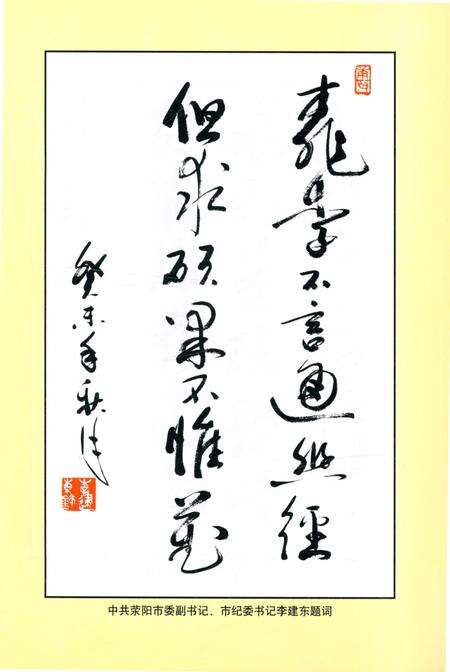 學不言通經
但求硕果不惟花
癸未年秋
中共荥阳市委副书记、市纪委书记李建东题词